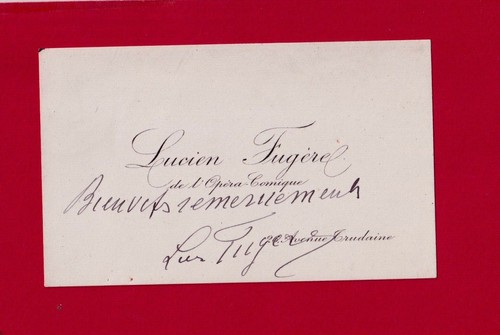 Lucien Fugère
de l'Opéra-Comique
Bien vifs remerciements
Luc Fugère
Avenue Trudaine